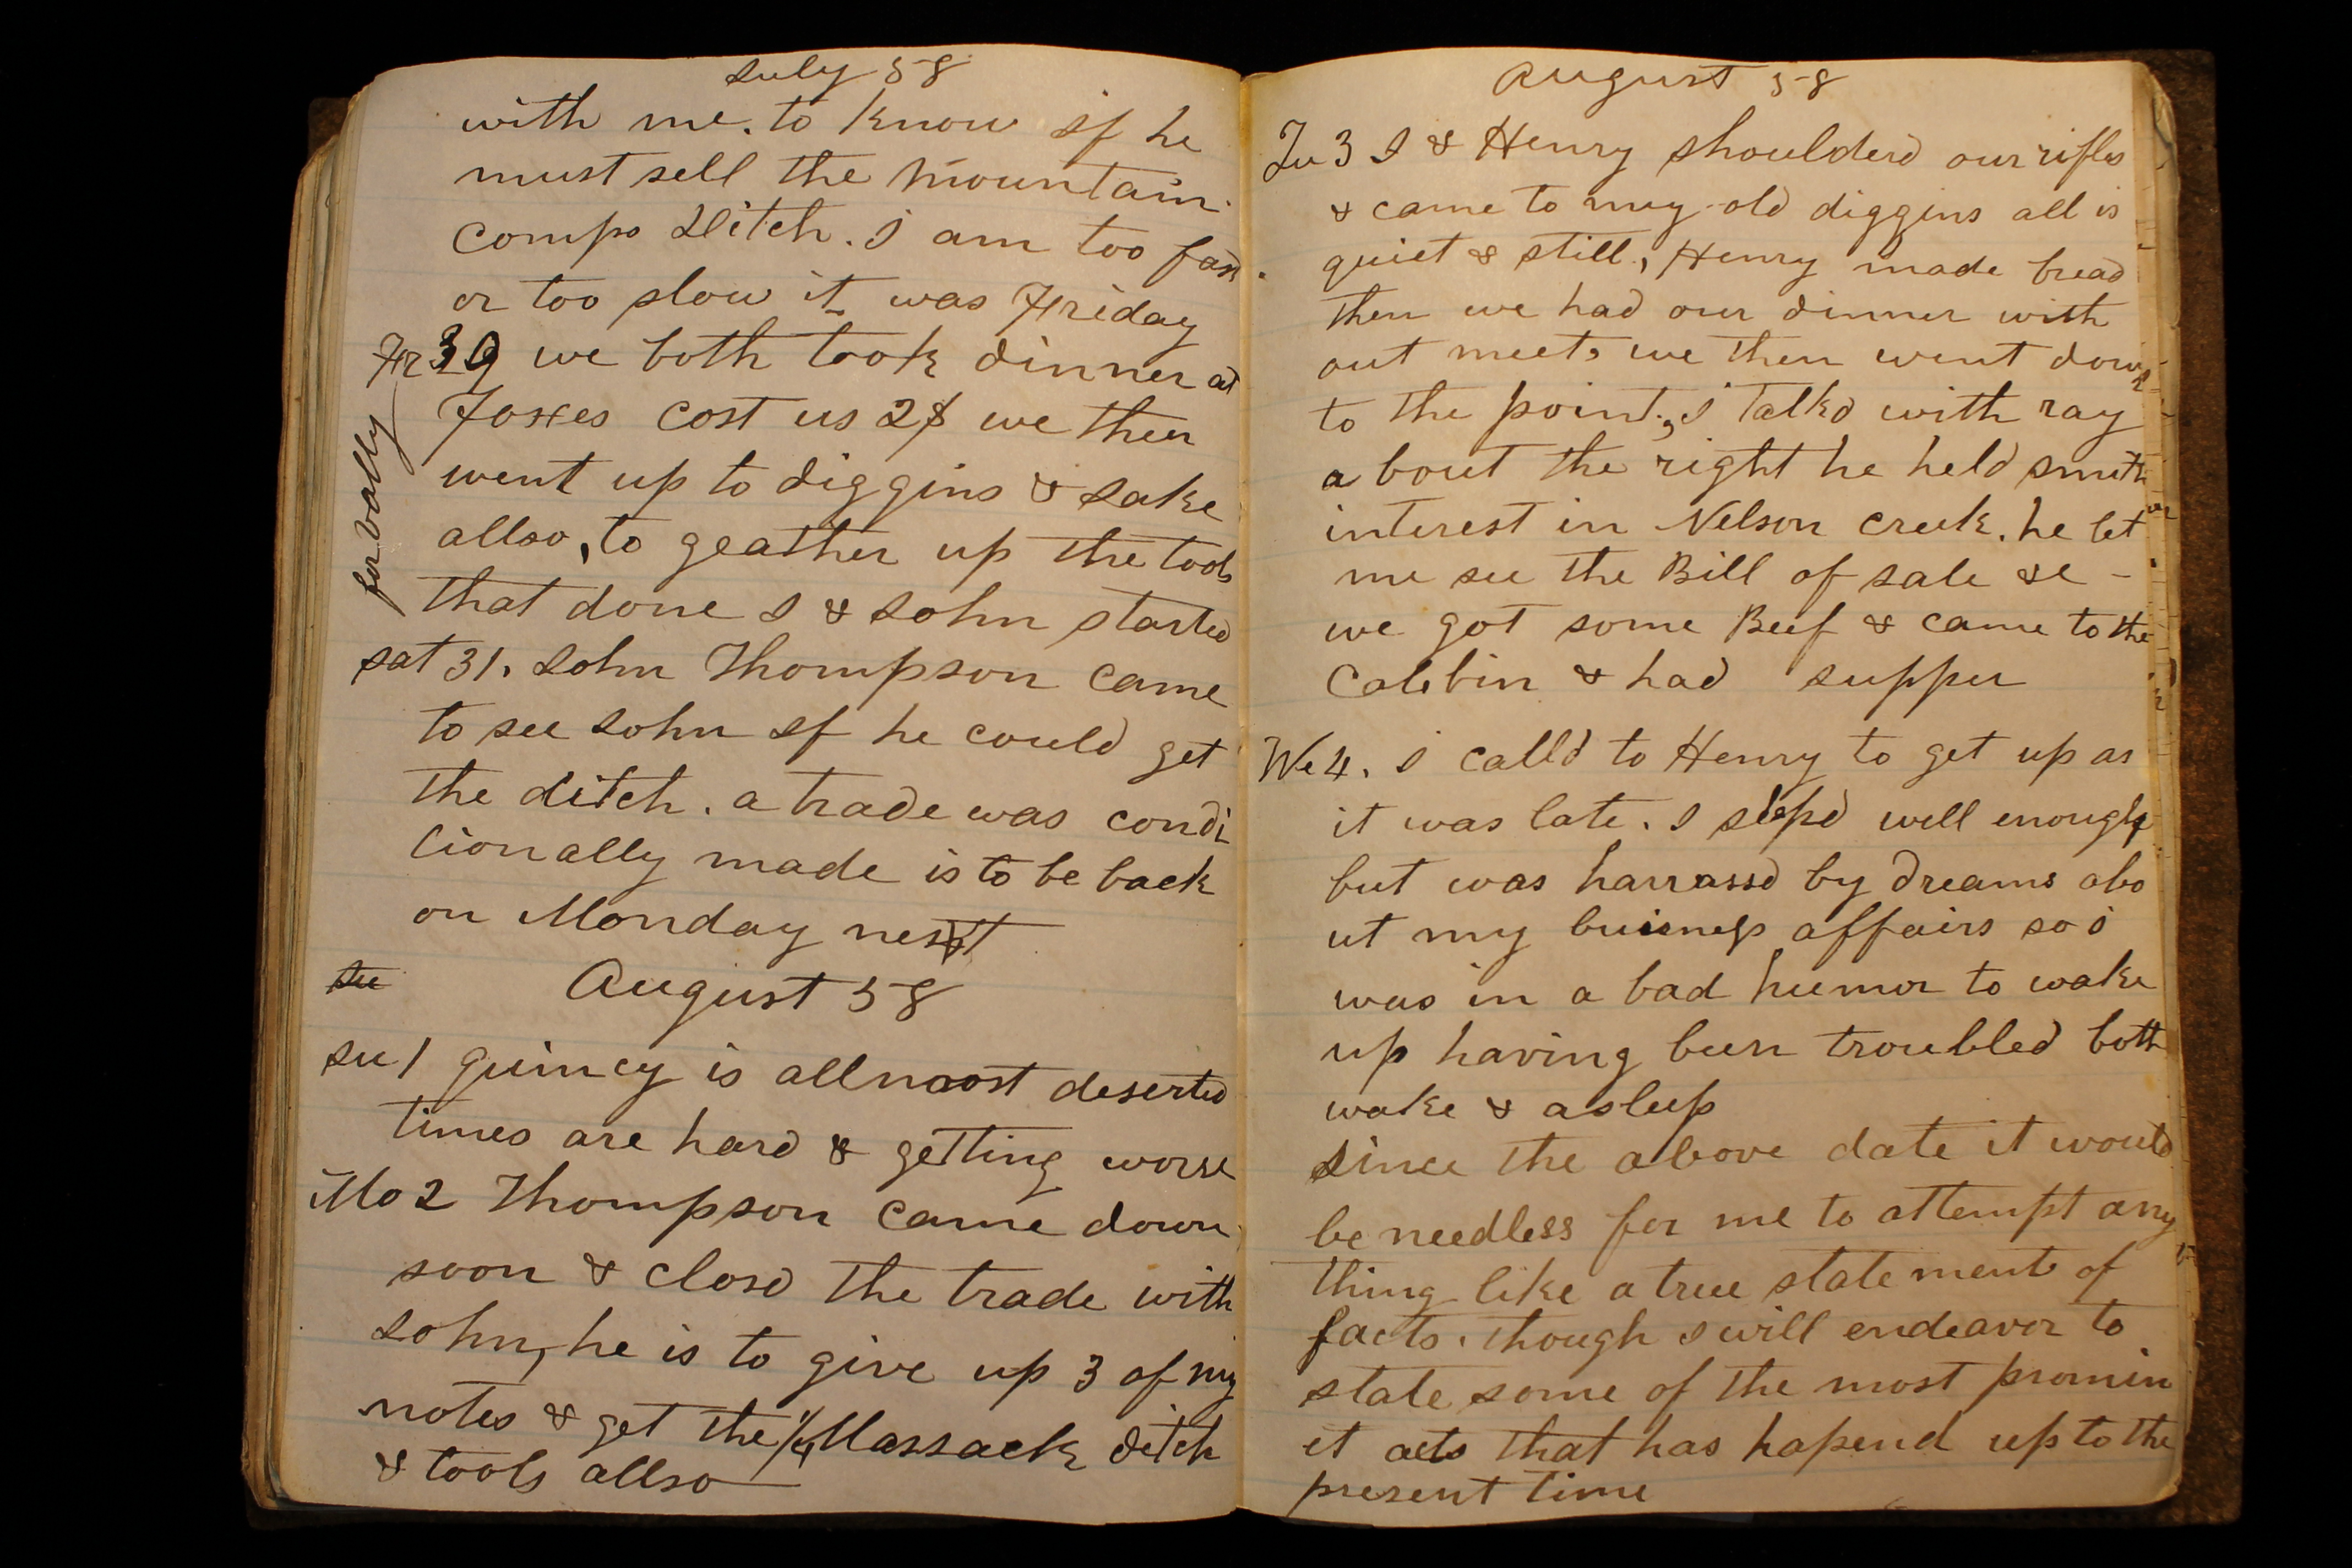 July 58
with me. to know if he
must sell the mountain
compo Ditch. I am too fast
or too slow it was Friday
Fr 30 we both took dinner at
Foxes cost us 2$ we then
went up to diggins & Jake
allso, to geather up the tools
for vally
that done I & John started
sat 31. John Thompson came
to see John if he could get
the ditch. a trade was condi
tionally made is to be back
on Monday next
su August 58
su 1 quincy is allmost deserted
times are hard & getting worse
Mo 2 Thompson came down
soon & closd the trade with
John, he is to give up 3 of my
notes & get the 1/4 Massack ditch
& tools allso
August 58
Tu 3 I & Henry shoulderd our rifles
& came to my old diggins all is
quiet & still, Henry made bread
then we had our dinner with
out meet. we then went down
to the point, I talkd with ray
a bout the right he held smith
interest in Nelson creek. he let
me see the Bill of sale &c -
we got some Beef & came to the
Calebin & had supper
We 4. I calld to Henry to get up as
it was late. I slepd well enough
but was harrassd by dreams abo
ut my buisness affairs so i
was in a bad humor to wake
up having been troubled both
wake & asleep
since the above date it would
be needless for me to attempt any
thing like a true statement of
facts. though I will endeavor to
state some of the most promin
et acts that has hapend up to the
present time